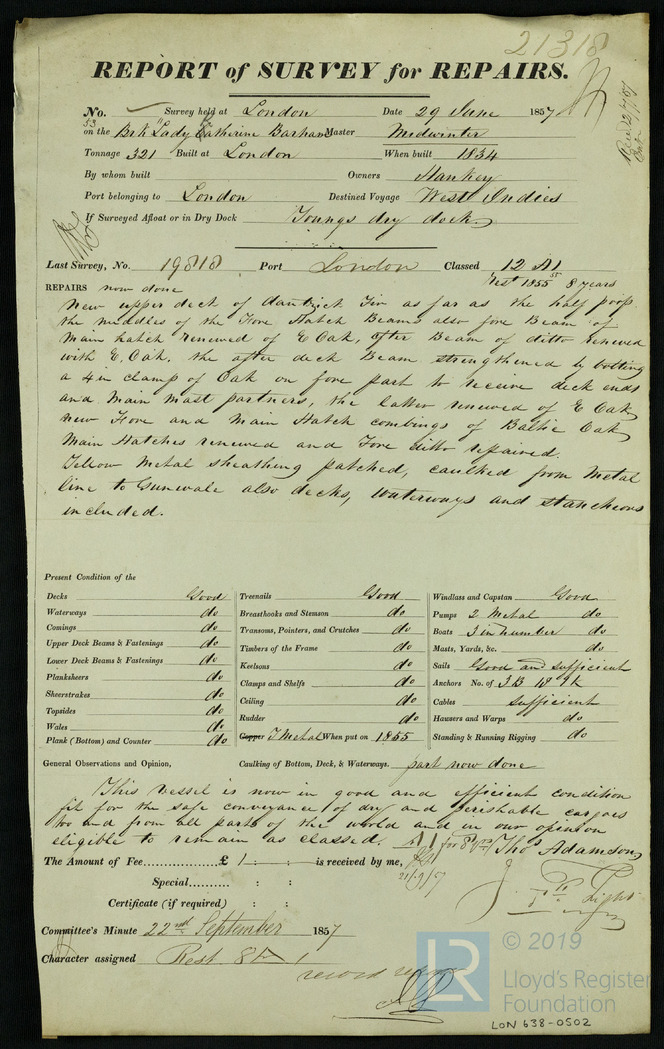 21318
REPORT of SURVEY for REPAIRS.
No. Survey held at London Date 29 June 1857
53
on the Brk Lady Catherine Barham Master Midwinter
Tonnage 321 Built at London When built 1834
By whom built Owners Hankey
Port belonging to London Destined Voyage West Indies
If Surveyed Afloat or in Dry Dock Youngs dry dock
Last Survey, No. 19818 Port London Classed 12 A1
Rest 1855 8 years
REPAIRS now done
New upper deck of dantzick Fir as far as the half poop
the middles of the Fore Hatch Beams also fore Beam of
Main hatch renewed of E Oak, after Beam of ditto renewed
with E. Oak, the after deck Beam strengthened by bolting
a 4 in clamp of Oak on fore part to receive deck ends
and Main Mast partners, the latter renewed of E Oak,
new Fore and Main Hatch combings of Baltic Oak,
Main Hatches renewed and Fore ditto repaired.
Yellow Metal sheathing patched, caulked from Metal
line to Gunwale also decks, Waterways and stancheons
included.
Present Condition of the
Decks Good
Waterways do
Comings do
Upper Deck Beams & Fastenings do
Lower Deck Beams & Fastenings do
Planksheers do
Sheerstrakes do
Topsides do
Wales do
Plank (Bottom) and Counter do
Treenails Good
Breasthooks and Stemson do
Transoms, Pointers, and Crutches do
Timbers of the Frame do
Keelsons do
Clamps and Shelfs do
Ceiling do
Rudder do
Copper Y Metal When put on 1855
Windlass and Capstan Good
Pumps 2 Metal do
Boats 3 in number do
Masts, Yards, &c. do
Sails Good and sufficient
Anchors No. of 3 B 1 S 1 K
Cables sufficient
Hausers and Warps do
Standing & Running Rigging do
General Observations and Opinion, Caulking of Bottom, Deck, & Waterways. part now done
This vessel is now in good and efficient condition
fit for the safe conveyance of dry and perishable cargoes
to and from all parts of the world and in our opinion
eligible to remain as classed. A1 for 8 yrs Thos Adamson
The Amount of Fee £ 1 : : is received by me,
21/9/57
Special : :
Light
Certificate (if required) : :
Committee's Minute 22nd September 1857
Character assigned Rest 8 A 1
© 2019
LR Lloyd's Register
Foundation
LON 638-0502